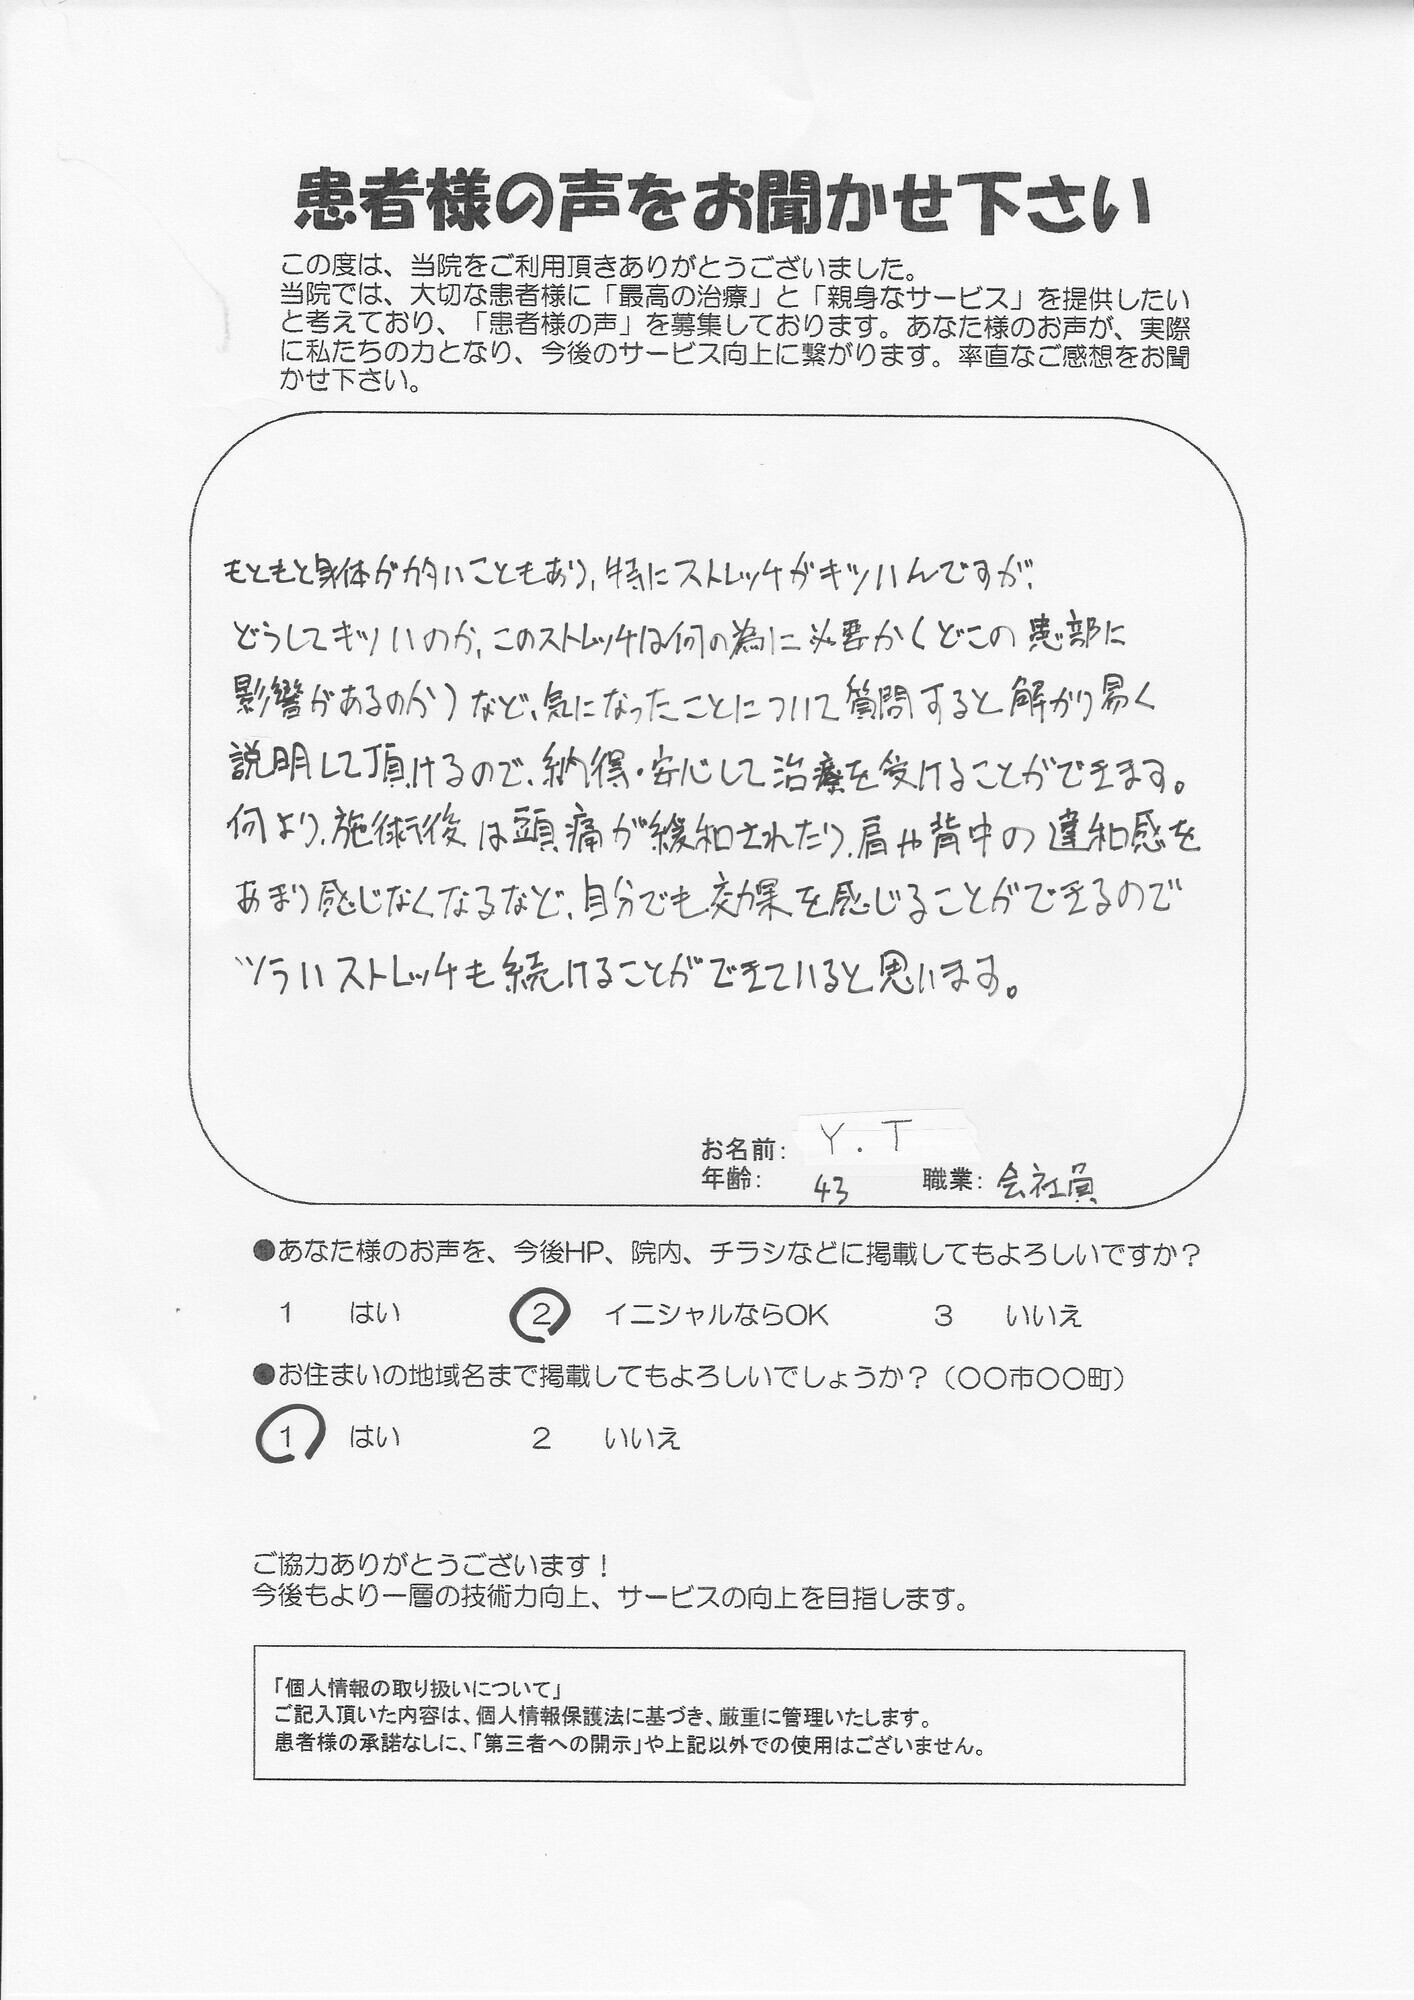 患者様の声をお聞かせ下さい
この度は、当院をご利用頂きありがとうございました。
当院では、大切な患者様に「最高の治療」と「親身なサービス」を提供したい
と考えており、「患者様の声」を募集しております。あなた様のお声が、実際
に私たちの力となり、今後のサービス向上に繋がります。率直なご感想をお聞
かせ下さい。
もともと身体がカタいこともあり、特にストレッチがキツいんですが、
どうしてキツいのか、このストレッチは何の為に必要か(どこの患部に
影響があるのか)など、気になったことについて質問すると解かり易く
説明して頂けるので、納得・安心して治療を受けることができます。
何より、施術後は頭痛が緩和されたり、肩や背中の違和感を
あまり感じなくなるなど、自分でも効果を感じることができるので
ツラいストレッチも続けることができていると思います。
お名前: Y.T
年齢: 43 職業: 会社員
●あなた様のお声を、今後HP、院内、チラシなどに掲載してもよろしいですか？
1 はい 2 イニシャルならOK 3 いいえ
●お住まいの地域名まで掲載してもよろしいでしょうか？（〇〇市〇〇町）
1 はい 2 いいえ
ご協力ありがとうございます！
今後もより一層の技術力向上、サービスの向上を目指します。
「個人情報の取り扱いについて」
ご記入頂いた内容は、個人情報保護法に基づき、厳重に管理いたします。
患者様の承諾なしに、「第三者への開示」や上記以外での使用はございません。